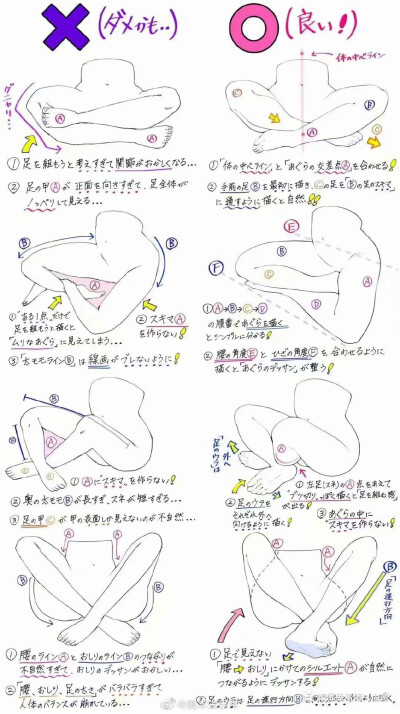 ✕ (ダメかも..)
○ (良い!)
グニャリ…
A
A
①足を組もうと考えすぎて関節がおかしくなる…
②足の甲Ⓐが正面を向きすぎて、足全体が
ノッペリして見える…
体の中心ライン
C
B
A
C
①「体の中心ライン」と「あぐらの交差点Ⓐを合わせる!
②手前の足Ⓑを最初に描き、Ⓒの足を「Ⓑの足のスキマ」
に通すように描くと自然!!
B
B
A
①"ある1点"だけで
足を組もうと描くと
「ムリなあぐら」に見えてしまう…
②スキマⒶ
を作らない!
③「太モモラインⒷ」は線画がブレないように!
E
B
F
C
A
D
D
①Ⓐ→Ⓑ→Ⓒ→Ⓓ
の順番であぐらを描く
とシンプルに分かる!
②腰の角度Ⓔとひざの角度Ⓕを合わせるように
描くと「あぐらのデッサン」が整う!
B
B
A
C
C
①Ⓐに"スキマ"を作らない!
②奥の太モモⒷが長すぎ、スネが短すぎる…
③足の甲Ⓒが甲の表面しか見えないのが不自然…
A
「足のウラは
外へ」
①左足(スネ)がⒶ点をあえて
「ブツ切り」っぽく描くと足を組む感
が出る!
②足のウラを
それぞれ外へ
向けるように描く!
③あぐらの中に
"スキマ"を作らない!
A
A
B
B
①「腰のラインⒶとおしりのラインⒷのつながりが
不自然すぎて、おしりのデッサンがおかしい…
②「腰、おしり、足の太さ」がバラバラすぎて
人体のバランスが崩れている…
A
A
B
「足の進行方向」
①足で見えない
「腰➡おしり」にかけてのシルエットⒶが自然に
つながるようにデッサンする!
②足のウラは足の進行方向Ⓑ